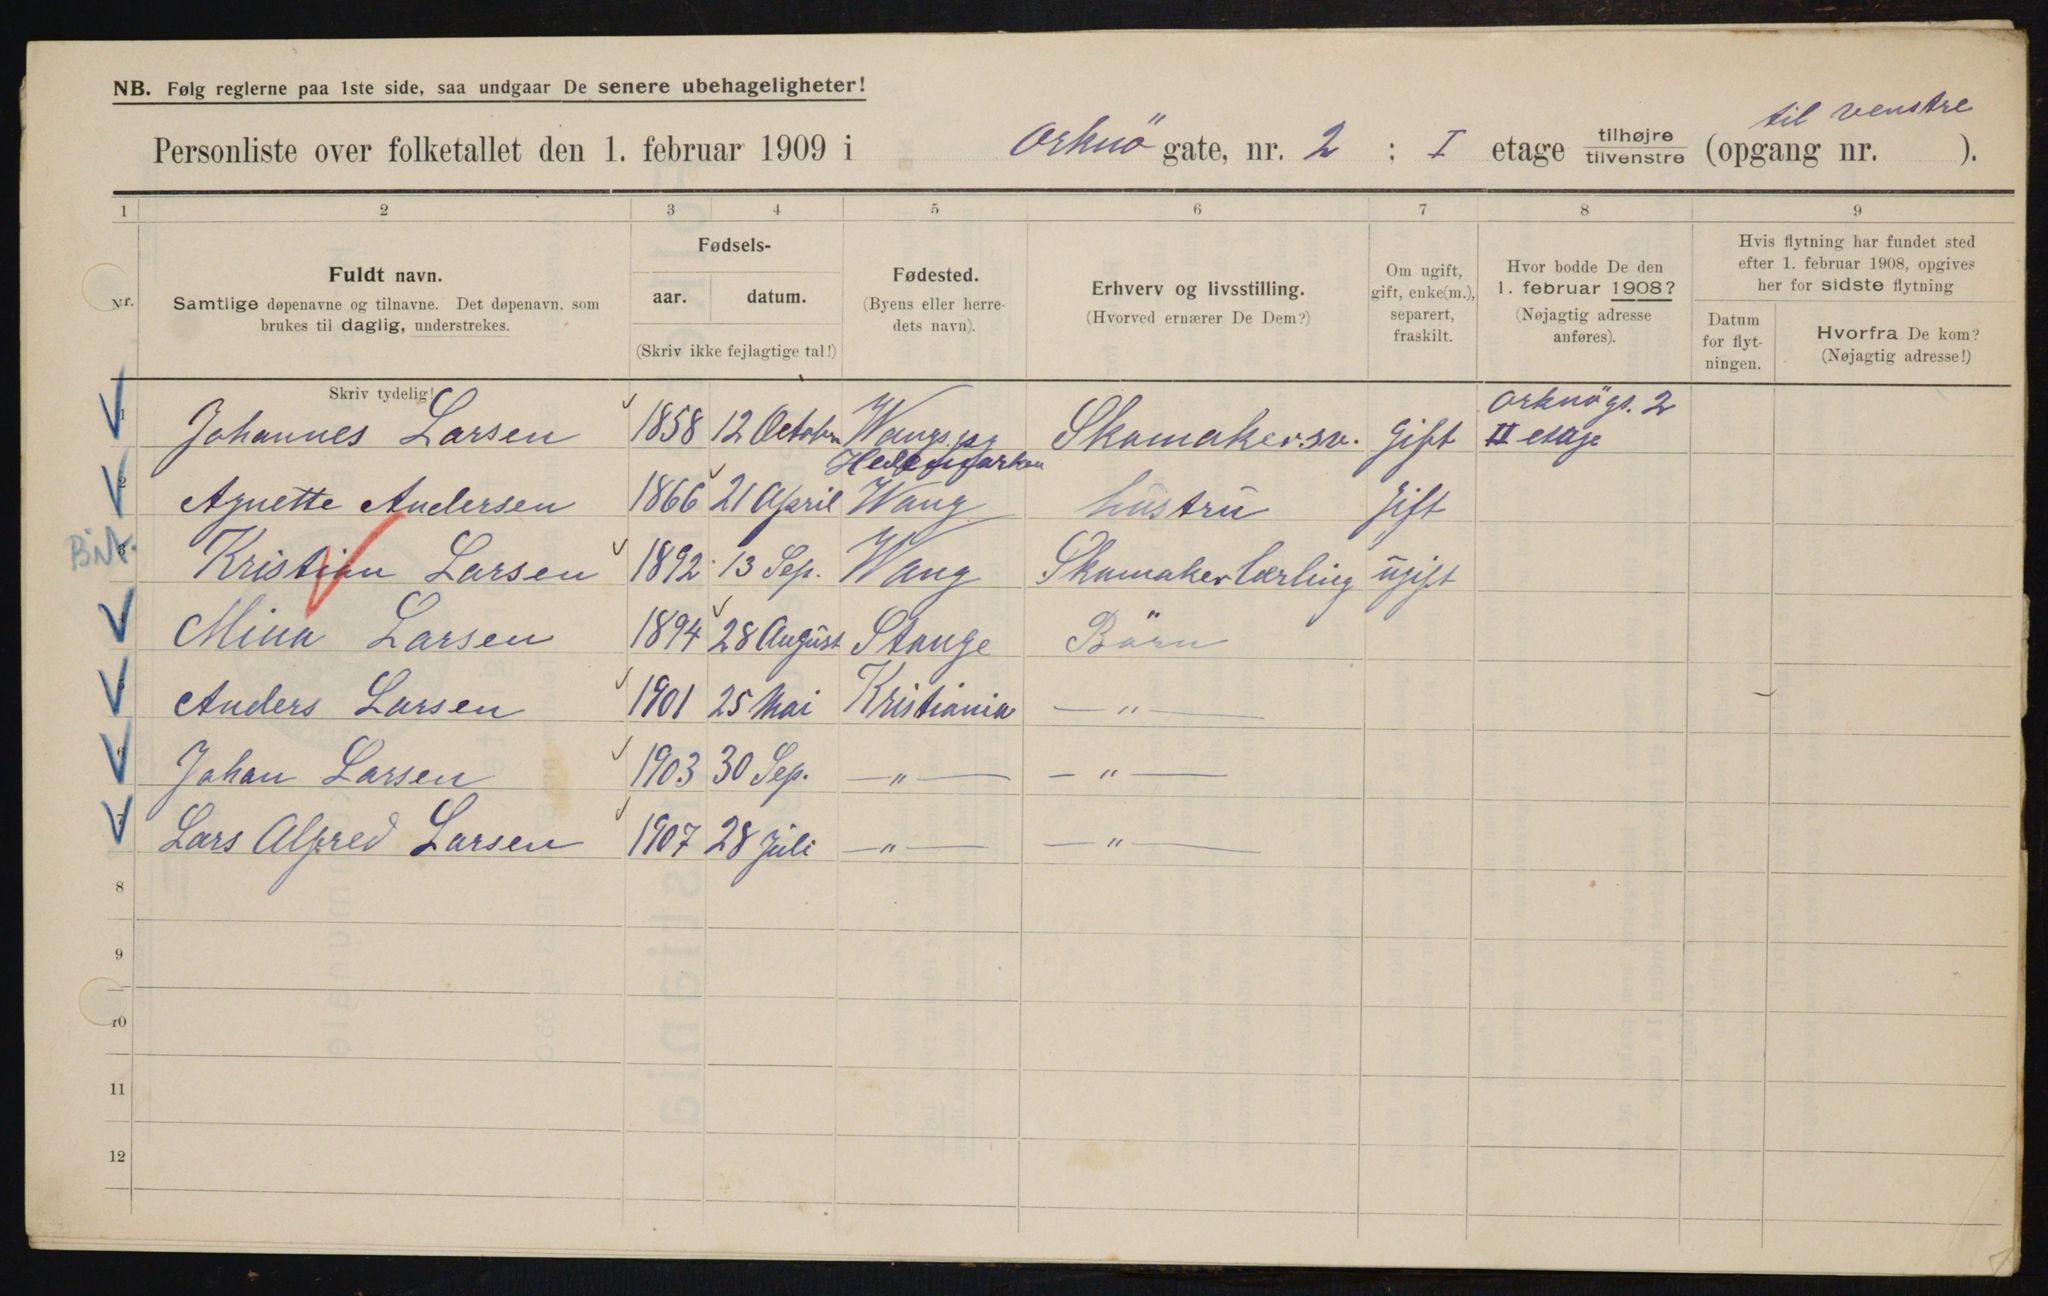 NB. Følg reglerne paa 1ste side, saa undgaar De senere ubehageligheter!
til venstre
Personliste over folketallet den 1. februar 1909 i Orknö gate, nr. 2 ; I etage tilhøjre tilvenstre (opgang nr. ).
1 2 3 4 5 6 7 8 9
Nr.
Fuldt navn.
Samtlige døpenavne og tilnavne. Det døpenavn, som
brukes til daglig, understrekes.
Skriv tydelig!
Fødsels-
aar. datum.
(Skriv ikke fejlagtige tal!)
Fødested.
(Byens eller herre-
dets navn).
Erhverv og livsstilling.
(Hvorved ernærer De Dem?)
Om ugift,
gift, enke(m.),
separert,
fraskilt.
Hvor bodde De den
1. februar 1908?
(Nøjagtig adresse
anføres).
Hvis flytning har fundet sted
efter 1. februar 1908, opgives
her for sidste flytning
Datum
for flyt-
ningen.
Hvorfra De kom?
(Nøjagtig adresse!)
1 Johannes Larsen 1858 12 October Wangs. pg Hedemarken Skomakersv. Gift Orknögs. 2 II etage
2 Agnette Andersen 1866 21 April Wang hustru Gift
3 Kristian Larsen 1892 13 Sep. Wang Skomakerlærling ugift
Mina Larsen 1894 28 August Stange Börn
5 Anders Larsen 1901 25 Mai Kristiania — " —
6 Johan Larsen 1903 30 Sep. — " — — " —
7 Lars Alfred Larsen 1907 28 Juli — " — — " —
8
9
10
11
12